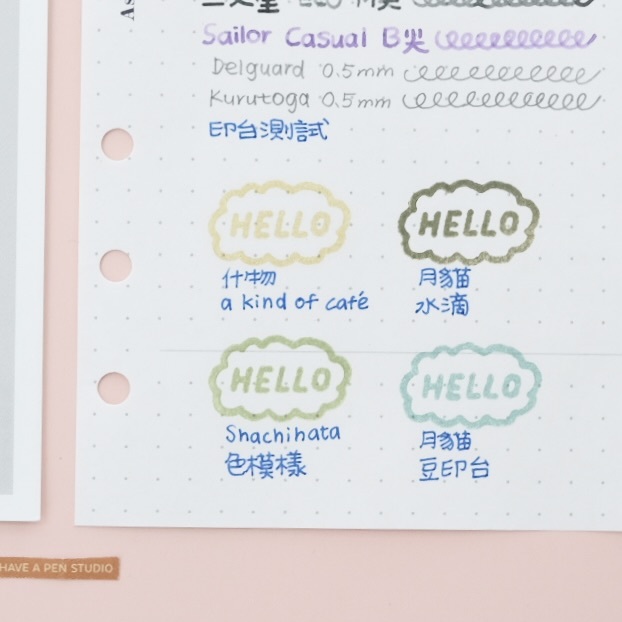 Sailor Casual B尖
Delguard 0.5mm
Kurutoga 0.5mm
印台測試
HELLO
HELLO
什物
a kind of café
月貓
水滴
HELLO
HELLO
Shachihata
色模樣
月貓
豆印台
HAVE A PEN STUDIO